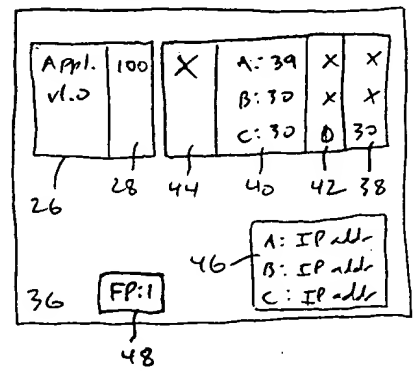 Appl. 100 X A: 39 X X
v1.0 B: 30 X X
C: 30 0 30
26 28 44 40 42 38
46 A: IP addr
B: IP addr
C: IP addr
36 FP:1
48